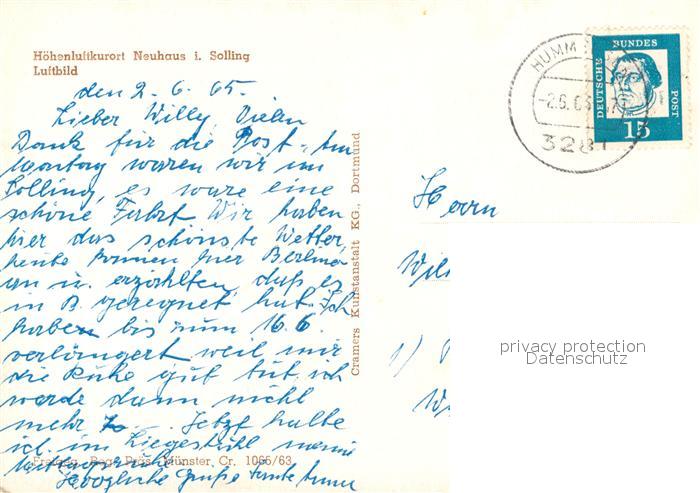 Höhenluftkurort Neuhaus i. Solling
Luftbild
den 2. 6. 65.
Lieber Willy, Vielen
Dank für die Post. Am
Montag waren wir im
Solling, es ware eine
schöne Fahrt Wir haben
hier das schönste Wetter,
heute kamen hier Berliner
an u. erzählten, daß es
in B. geregnet hat. Ich
habe bis zum 16.6.
verlängert weil mir
die Ruhe gut tut. ich
werde dann nicht
mehr Jetzt halte
ich im Liegestuhl meine
Mittagsruhe.
Herzliche Grüße
Freigeg. Reg. Präs. Münster, Cr. 1066/63
Cramers Kunstanstalt KG., Dortmund
HUMM
-2.6.65
3281
DEUTSCHE
BUNDES
POST
15
Herrn
privacy protection
Datenschutz